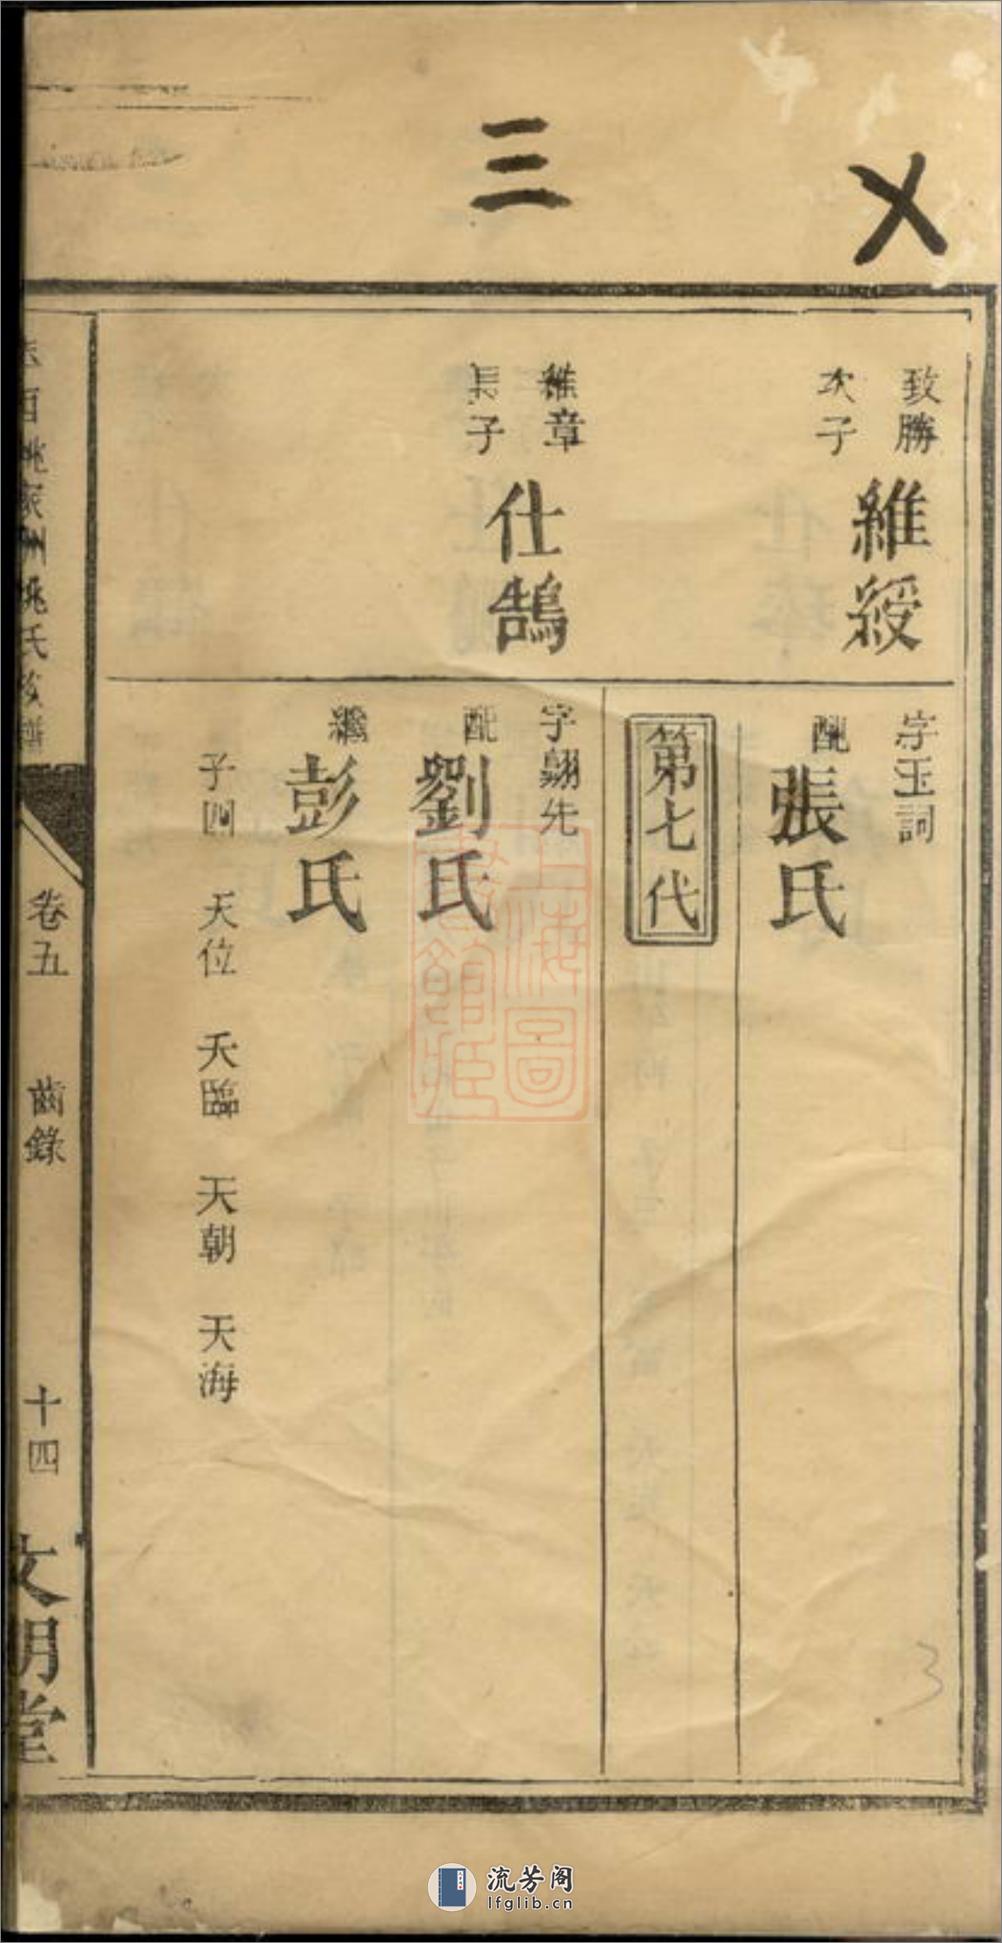 三
致勝
次子
維綬
字玉詞
配
張氏
第七代
維章
長子
仕鵠
字翶先
配
劉氏
繼
彭氏
子四 天位 天臨 天朝 天海
姚氏族譜
卷五 齒錄 十四
文明堂
上海圖
書館藏
3
流芳阁
lfglib.cn